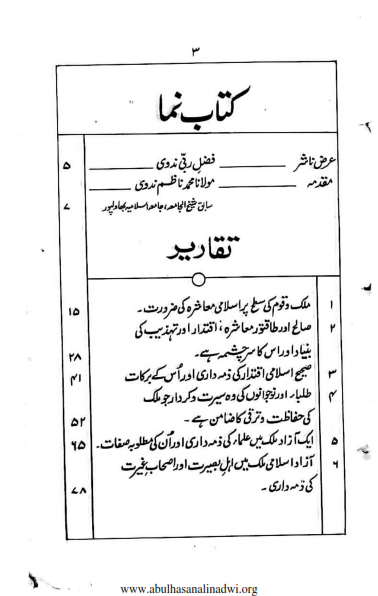 ۳
کتاب نما
عرض ناشر ـــــــــــ فضل ربّی ندوی ـــــــــــ ۵
مقدمہ ـــــــــــ مولانا محمد ناظم ندوی ـــــــــــ
سابق شیخ الجامعہ، جامعہ اسلامیہ بھاولپور ۷
تقاریر
۱ ملک و قوم کی سطح پر اسلامی معاشرہ کی ضرورت۔ ۱۵
۲ صالح اور طاقتور معاشرہ، اقتدار اور تہذیب کی
بنیاد اور اس کا سرچشمہ ہے۔ ۲۸
۳ صحیح اسلامی اقتدار کی ذمہ داری اور اُس کے برکات ۴۱
۴ طلباء اور نوجوانوں کی وہ سیرت و کردار جو ملک
کی حفاظت و ترقی کا ضامن ہے۔ ۵۲
۵ ایک آزاد ملک میں علماء کی ذمہ داری اور اُن کی مطلوبہ صفات۔ ۶۵
۶ آزاد اسلامی ملک میں اہل بصیرت اور اصحاب غیرت
کی ذمہ داری۔ ۷۸
www.abulhasanalinadwi.org